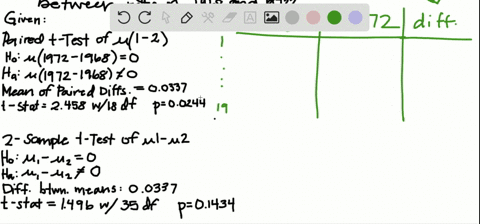 Between
Given:
72 | diff.
Paired t-Test of μ(1-2)
1
H₀: μ(1972-1968)=0
Hₐ: μ(1972-1968)≠0
Mean of Paired Diffs. = 0.0337
t-stat = 2.458 w/18 df p=0.0244
19
2-Sample t-Test of μ1-μ2
H₀: μ₁-μ₂=0
Hₐ: μ₁-μ₂≠0
Diff. btwn. means: 0.0337
t-stat = 1.496 w/ 35 df p=0.1434